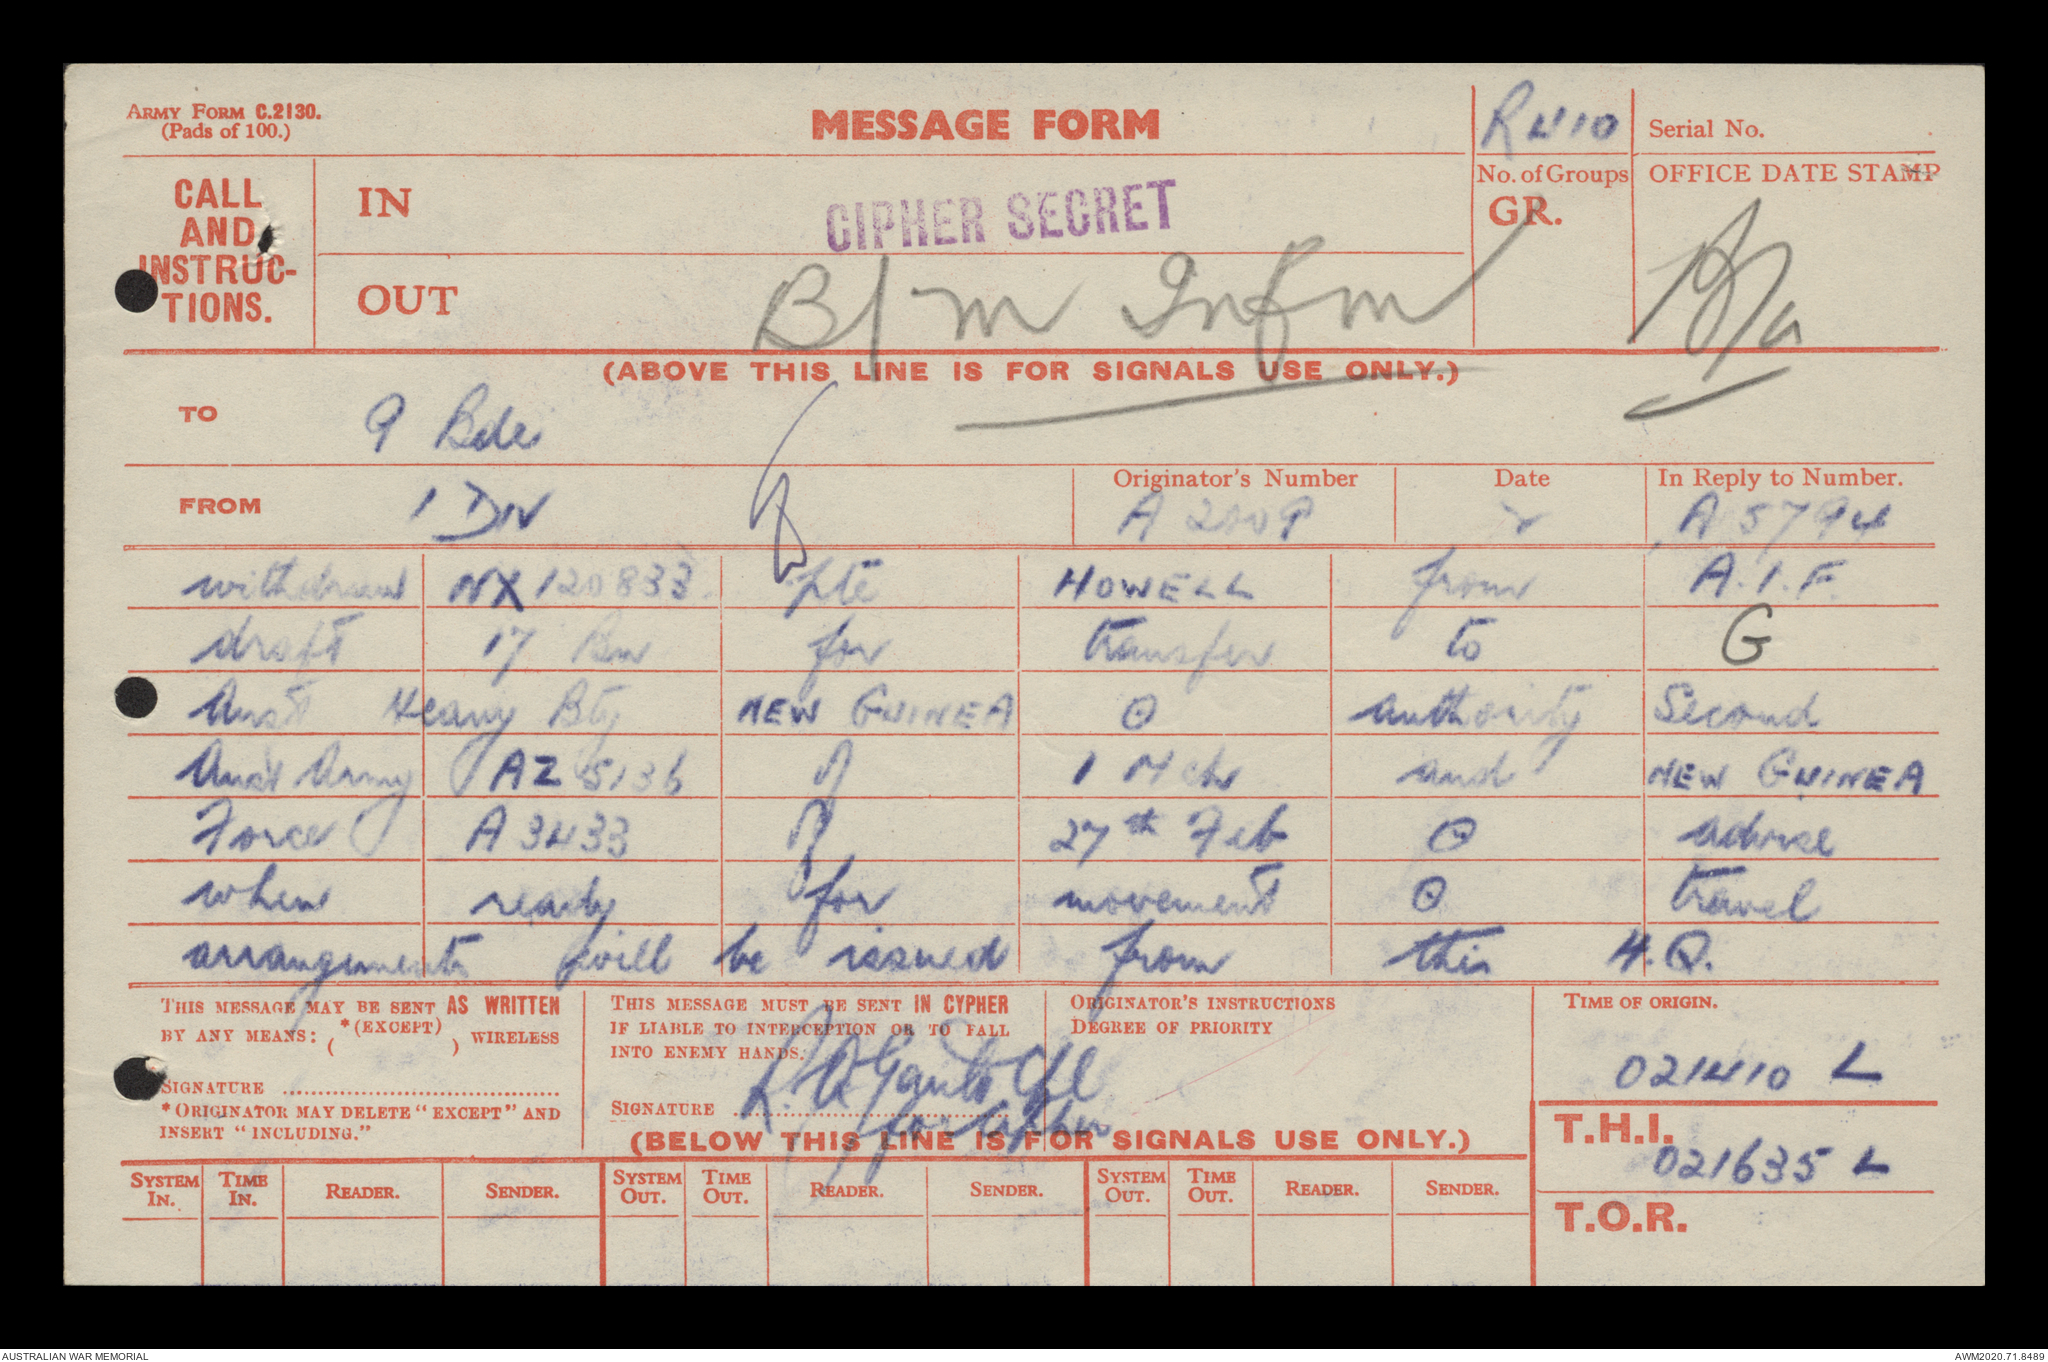 ARMY FORM C.2130.
(Pads of 100.)
MESSAGE FORM
R4110
Serial No.
CALL
AND
INSTRUC-
TIONS.
IN
CIPHER SECRET
No. of Groups
GR.
OFFICE DATE STAMP
OUT
B/m Infm
(ABOVE THIS LINE IS FOR SIGNALS USE ONLY.)
TO 9 Bde
FROM 1 DIV
Originator's Number
A 2009
Date
2
In Reply to Number.
A 5794
withdraw NX 120833 Pte HOWELL from A.I.F.
draft 17 Bn for transfer to G
Aust Heavy Bty NEW GUINEA authority Second
Aust Army AZ 5136 of 1 Mch and NEW GUINEA
Force A 3433 of 27th Feb advise
when ready for movement travel
arrangements will be issued from this H.Q.
THIS MESSAGE MAY BE SENT AS WRITTEN
BY ANY MEANS: *(EXCEPT) WIRELESS
( )
SIGNATURE
*ORIGINATOR MAY DELETE "EXCEPT" AND
INSERT "INCLUDING."
THIS MESSAGE MUST BE SENT IN CYPHER
IF LIABLE TO INTERCEPTION OR TO FALL
INTO ENEMY HANDS.
SIGNATURE
for Cipher
ORIGINATOR'S INSTRUCTIONS
DEGREE OF PRIORITY
TIME OF ORIGIN.
021410 L
(BELOW THIS LINE IS FOR SIGNALS USE ONLY.)
T.H.I.
021635 L
T.O.R.
SYSTEM IN. TIME IN. READER. SENDER. SYSTEM OUT. TIME OUT. READER. SENDER. SYSTEM OUT. TIME OUT. READER. SENDER.
AUSTRALIAN WAR MEMORIAL
AWM2020.71.8489